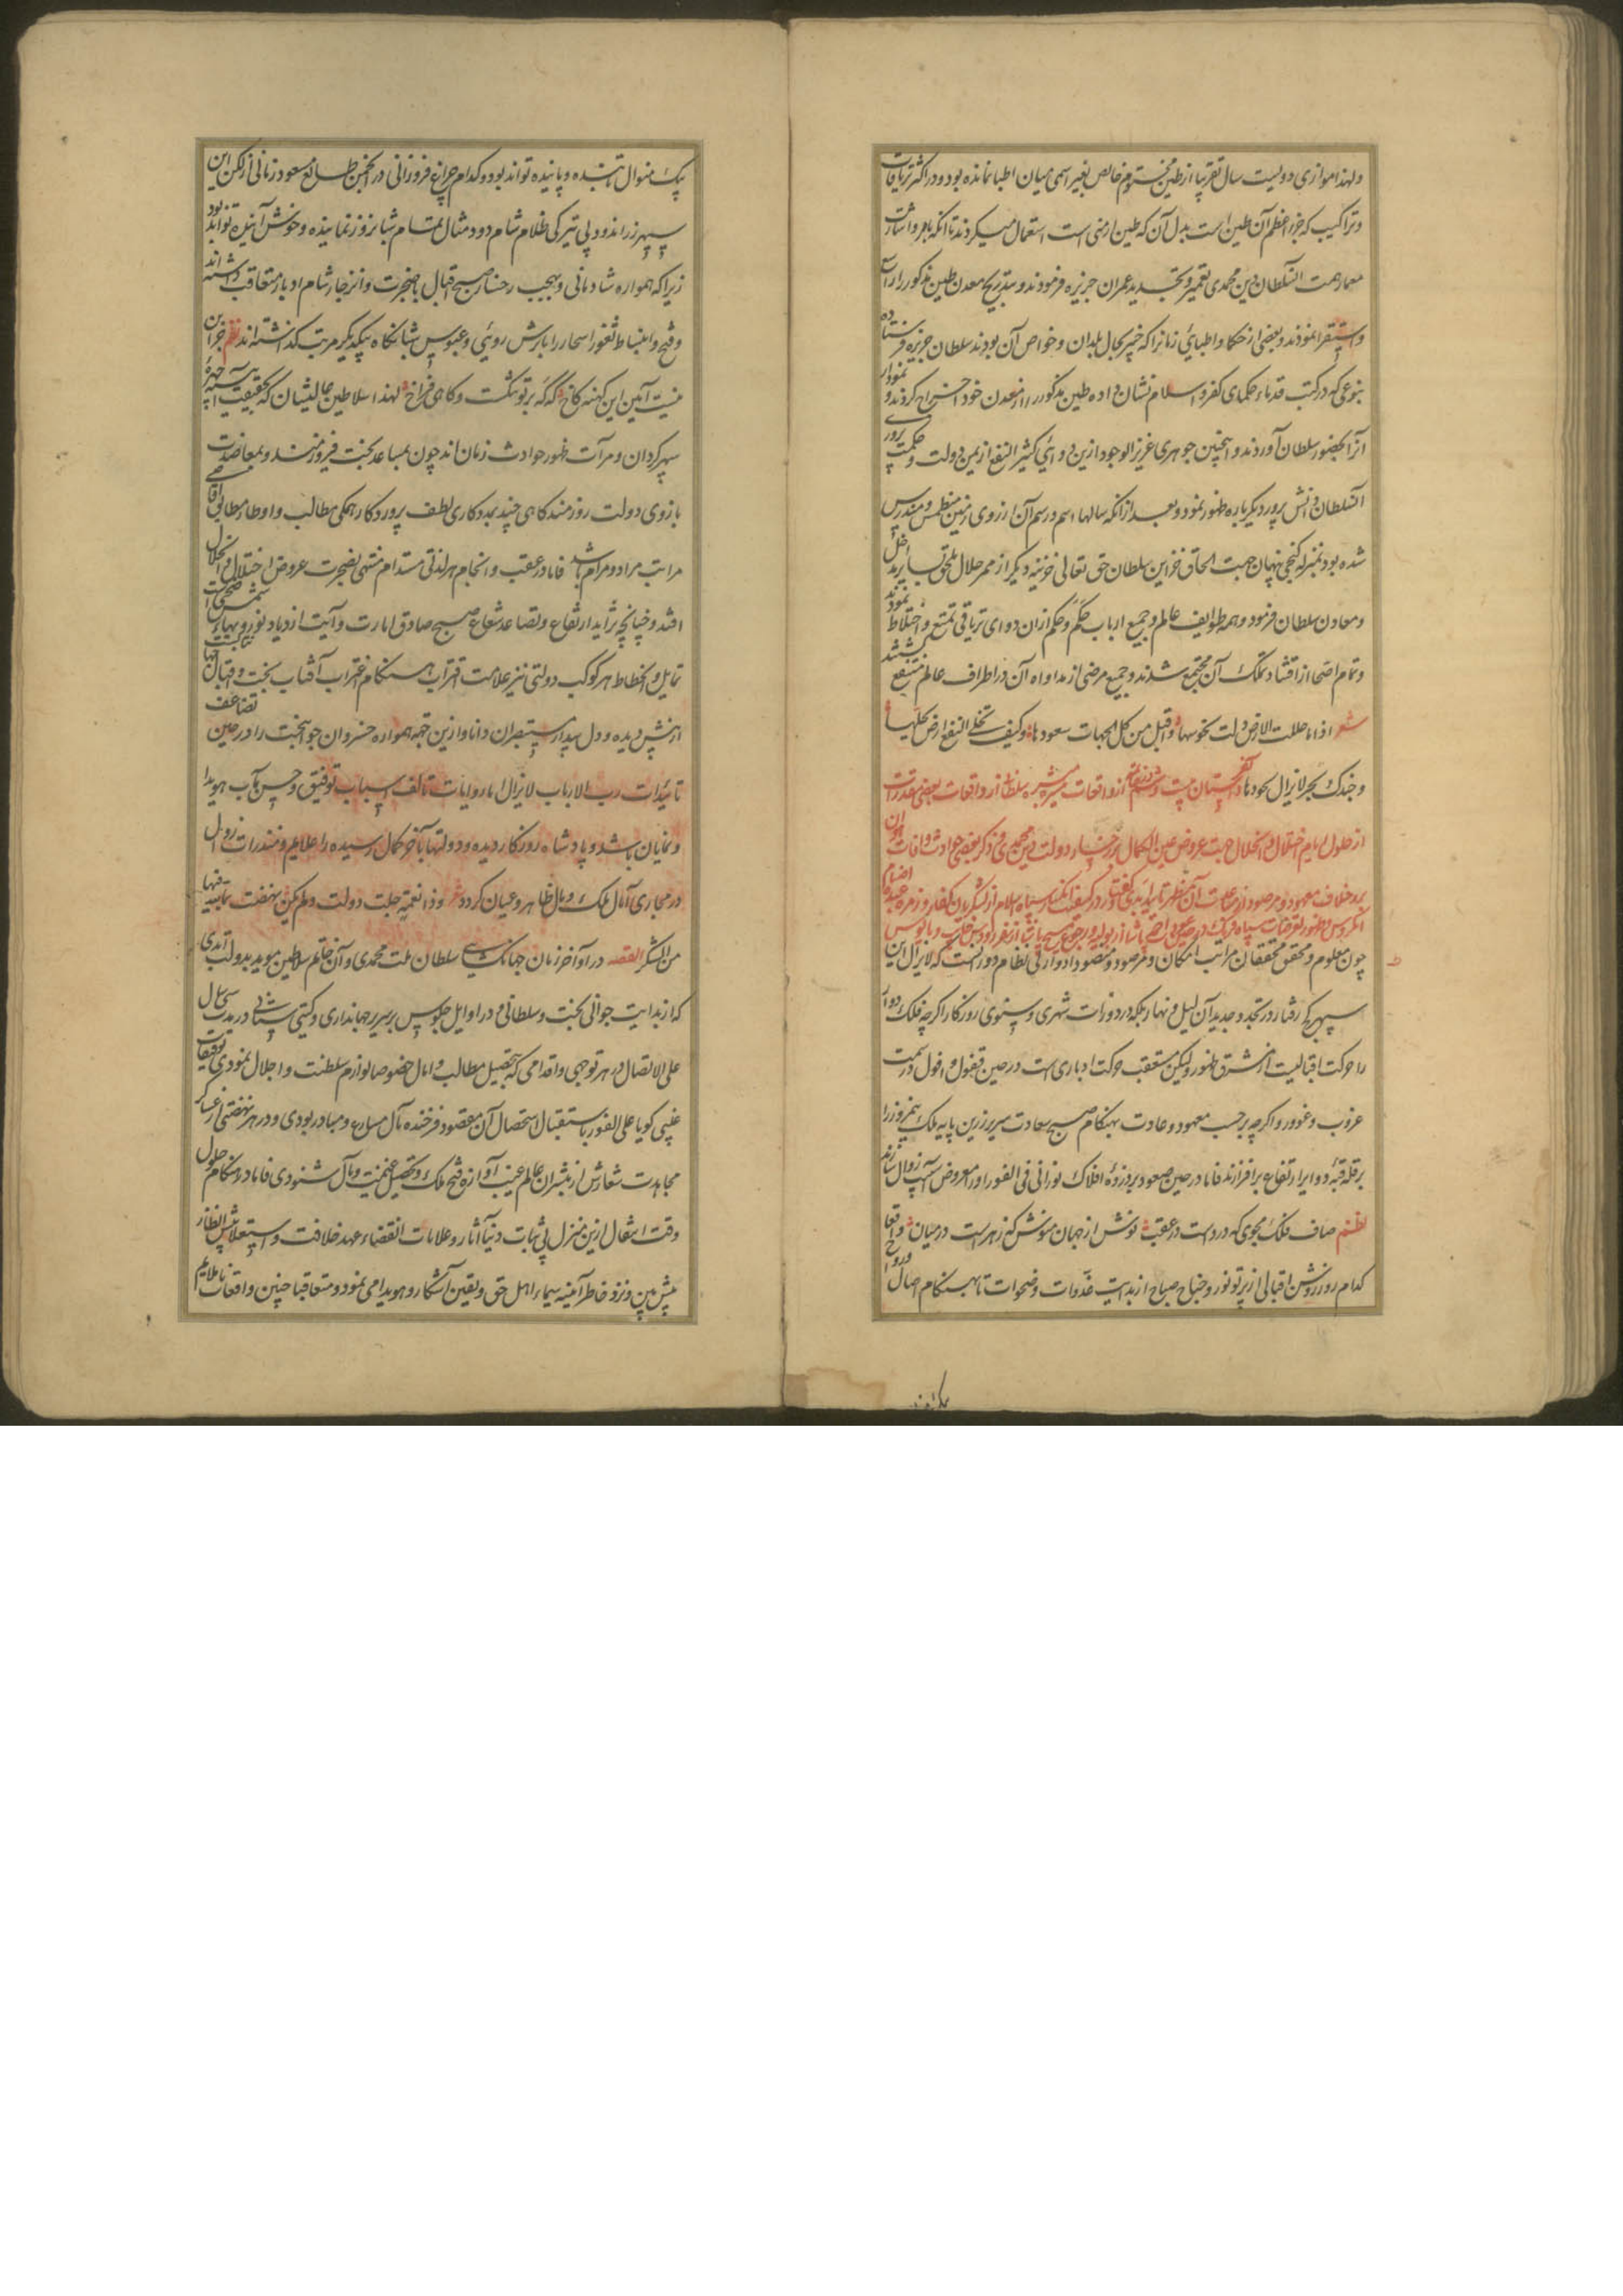 ولهذا موازی دویست سال تقریبا از طین مختوم خالص بغیر اسمی میان اطبا نمانده بود و در اکثر تریاقات
و تراکیب که جزو اعظم آن طین است بدل آن که طین ارمنی است استعمال میکردند تا آنکه بامر و اشارت
معمار همت السلطان دین محمدی تعمیر و تجدید عمران جزیره فرمودند و بتدریج معدن طین مذکور را
و استقرا نمودند و بعضی از حکما و اطبای زمانرا که خبیر بحال بلدان و خواص آن بودند سلطان جزیره فرستاده
بنوعی که در کتب قدماء حکمای کفر و اسلام نشان داده طین مذکور را از معدن خود استخراج کردند و نمودار
آنرا بحضور سلطان آوردند و اینچنین جوهری عزیز الوجود ازین دوائی کثیر النفع از یمن دولت و حکمت پروری
السلطان دانش پرور دیگر باره ظهور نمود و بعد از آنکه سالها اسم و رسم آن از روی زمین منطمس و مندرس
شده بود بمنزله گنجی پنهان جهت الحاق خزاین سلطان حق تعالی خزینه دیگر از ممر حلال ملحق بسایر مداخل
و معادن سلطان فرمود و همه طوایف عالم و جمیع ارباب حکم و حکم از آن دوای تریاقی تمتع و اختلاط نمودند
و تمام اصحا از اقتناء و تملک آن مجتمع شدند و جمیع مرضی از مداواه آن در اطراف عالم منتفع گشتند
شعر اذا ما حللت الارض ولت نحوسها و اقبل من کل الجهات سعودها و کیف تخلی النفع ارض کلها
و جندک بحر لا یزال یجودها داستان بیست و از واقعات سلطان از واقعات بعضی مقدرات
از حلول ایام اختلال و انحلال جهت عروض عین الکمال بر رخسار دولت دین محمدی و ذکر بعضی حوادث و آفات
بر خلاف معهود و مرصود از عنایت آن مظهر تأیید ابدی گفتار در کیفیت انکسار سپاه اسلام از لشکریان کفار
چون معلوم و محقق محققان مراتب امکان و مرصود و مقصود ادوار فی نظام دورانست که لا یزال این
سپهر کج رفتار در تجدد و جدیدان لیل و نهار بلکه در دورات شهری و سنوی روزگار اگر چه فلک دوار
را حرکت اقبالیت از مشرق ظهور ولیکن متعقب حرکت ادباری است در حین قفول و افول در سمت
غروب و غوور و اگر چه بر حسب معهود و عادت بهنگام صبح سعادت سریر زرین پایه ملک نیمروز را
بر قله قبه دوایر ارتفاع برافرازند فاما در حین صعود بر ذروه افلاک نورانی فی الفور او را معروض آسیب زوال سازند
نظم صاف فلک مجوی که دردست در عقب نوش از جهان منوش که زهرست در میان واقعا
کدام روز روشن اقبالی از پرتو نور و جناح صباح از بدایت غدوات و ضحوات تا بهنگام آصال
یک منوال تابنده و پاینده تواند بود و کدام چراغ فروزانی در انجمن طالع مسعود زمانی از رکن این
سپهر زراندود بی تیرگی ظلام شام دود مثال تمام شبانروز نماینده و خوش آینده تواند بود
زیرا که همواره شادمانی و بهجت رخسار صبح اقبال باضجرت و انزجار شام ادبار متعاقب داشته اند
و فتح و انبساط ثغور اسحار را با ترش رویی و عبوس شبانگاه بیکدیگر مرتب گذاشته اند نظم جز این
نیست آیین این کهنه کاخ که گه بر تو تنگست و گاهی فراخ لهذا سلاطین عالیشان که بحقیقت آینه چهره
سپهر گردان و مرآت ظهور حوادث زمان اند چون بمساعد بخت فیروزمند و بمعاضدت
بازوی دولت روزمند گاهی چند بمددکاری لطف پروردگار همگی مطالب و اوطار مطابق اقصای
مراتب مراد و مرام باشد فاما در عقب و انجام هر لذتی مستدام منتهی بضجرت عروض اختلال و انحلال
افتد و چنانچه تزاید ارتفاع و تصاعد شعاع صبح صادق امارت و آیت ازدیاد نور و بهاء شمس است
تمایل و انحطاط هر کوکب دولتی نیز علامت اقتراب هنگام اغتراب آفتاب بخت و اقبال
از پیش دیده و دل بیدار مستبصران دانا و ازین جهة همواره خسروان جوانبخت را در حین تضاعف
تائیدات رب الارباب لا یزال امارات و آیات تالف اسباب توفیق و حسن مآب هویدا
و نمایان باشد و پادشاه روزگار دیده و دولتها بآخر کمال رسیده را علایم و منذرات زوال
در مجاری آمال ملک و مال ظاهر و عیان گردد شعر و ذا نعمة جلت دولت و لم یکن
من الشکر القصه در آواخر زمان جهانگشایی سلطان ملت محمدی و آن خاتم سلاطین موید بدولت ابدی
که از بدایت جوانی بخت و سلطانی و در اوایل جلوس بر سریر جهانداری و گیتی ستانی در مدت سی سال
علی الاتصال در هر توجهی و اقدامی که بتحصیل مطالب و آمال خصوصا لوازم سلطنت و اجلال نمودی توفیقات
غیبی گویا علی الفور باستقبال استحصال آن مقصود فرخنده مآل مسارع و مبادر بودی و در هر نهضتی از عساکر
مجاهدت شعارش از مبشران عالم غیب آوازه فتح ملک و تحصیل غنیمت و مال شنودی فاما در هنگام حلول
وقت انتقال ازین منزل بی ثبات دنیا آثار و علامات انقضاء عهد خلافت و استعلا
پیش بین و نزد خاطر آئینه سیماء اهل حق و یقین آشکار و هویدا می نمود و متعاقبا چنین واقعات ناملایم